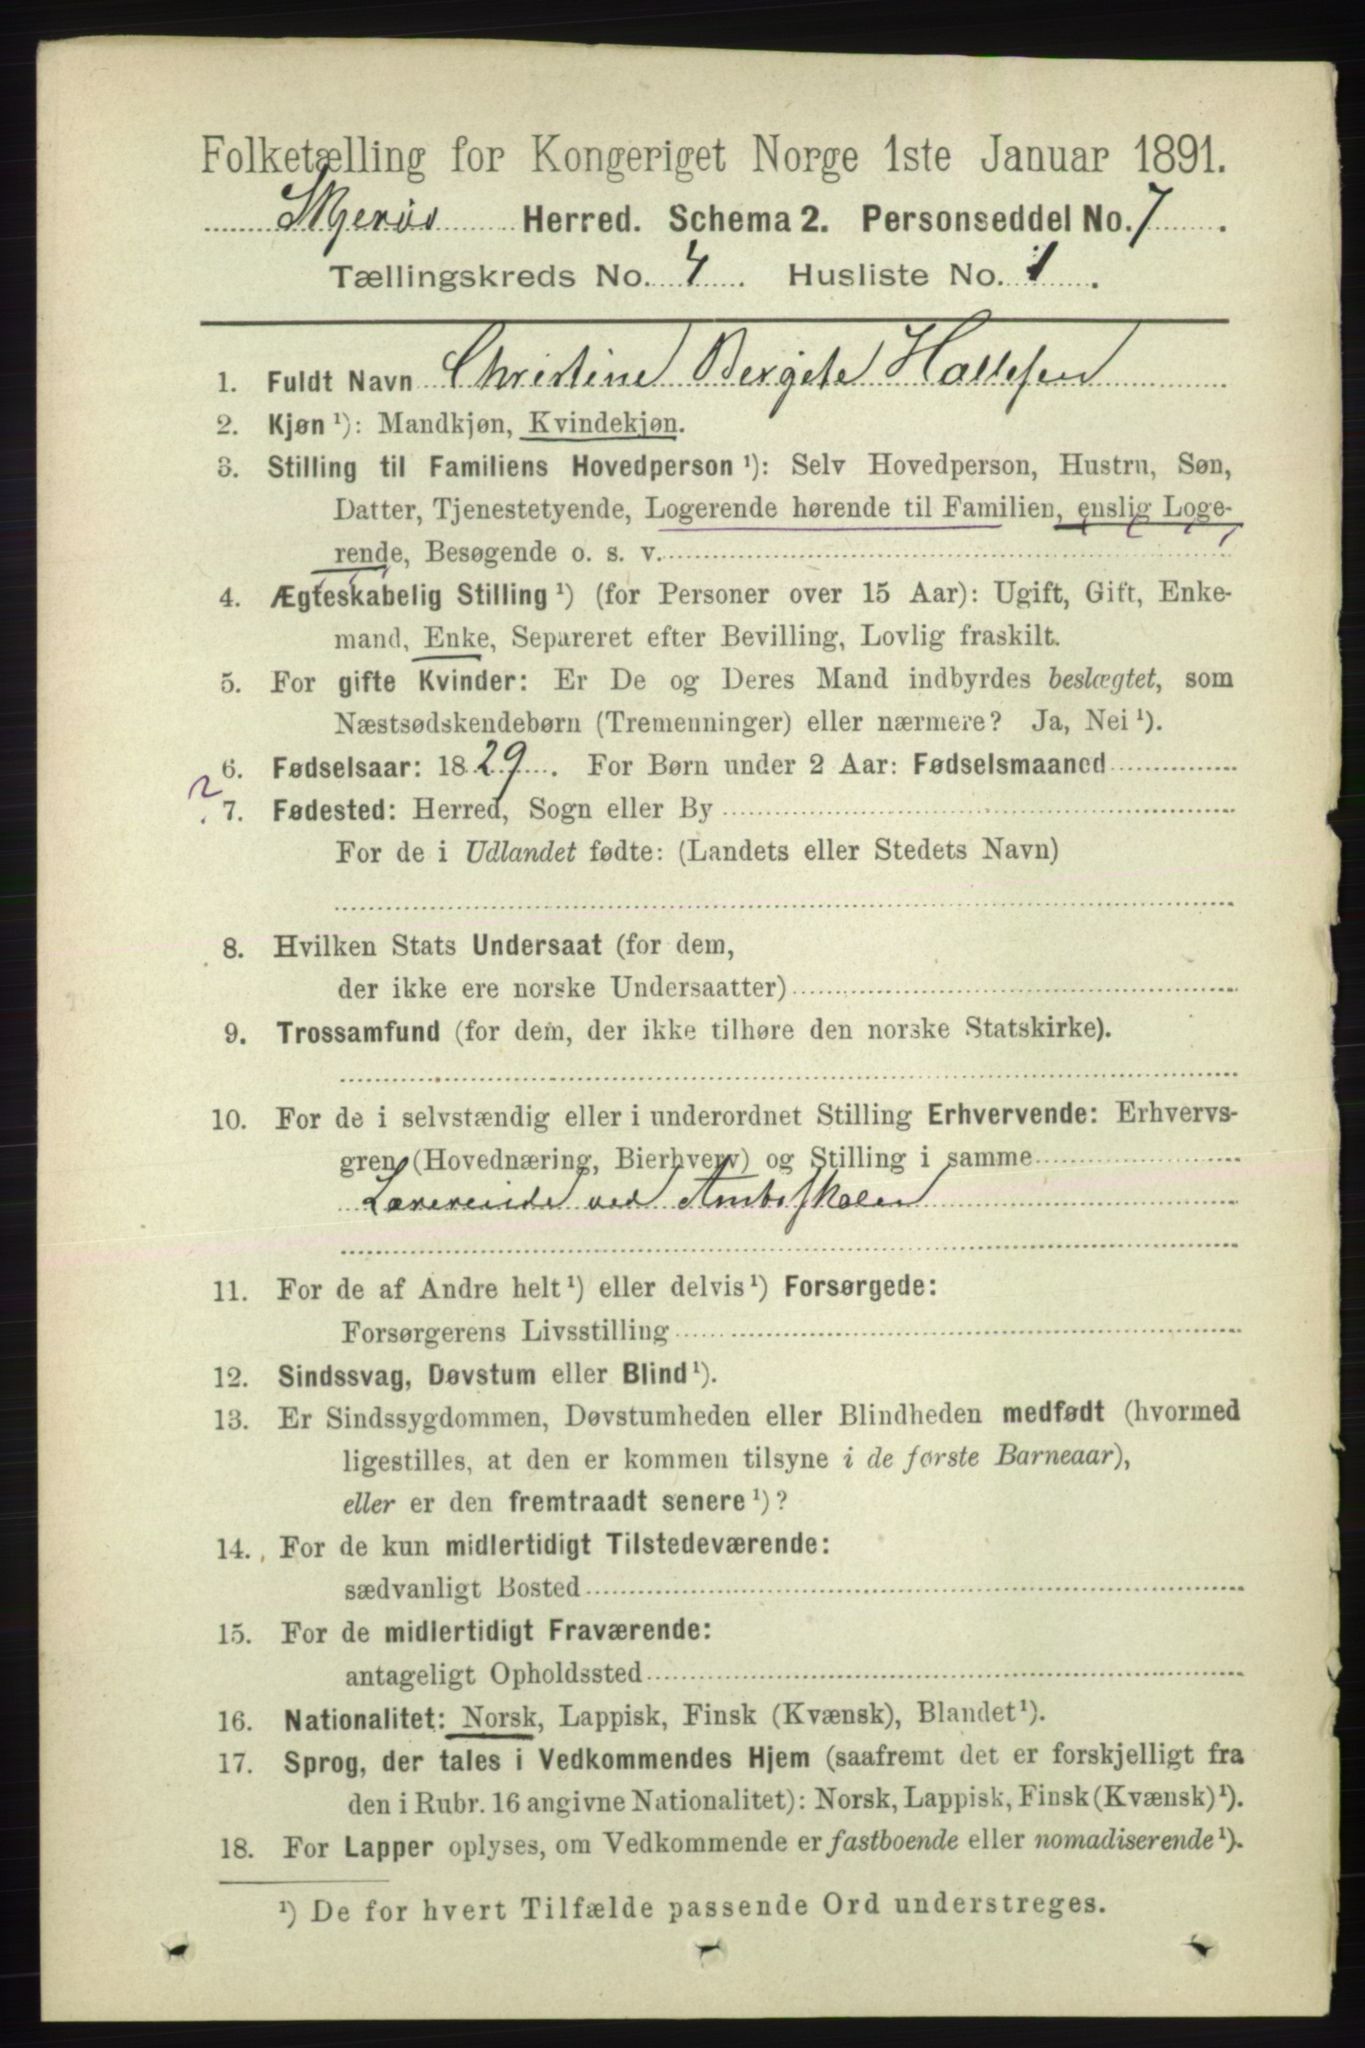 Folketælling for Kongeriget Norge 1ste Januar 1891.
Skjerøs Herred. Schema 2. Personseddel No. 7.
Tællingskreds No. 4. Husliste No. 1.
1. Fuldt Navn Christine Bergete Hallesen
2. Kjøn ¹): Mandkjøn, Kvindekjøn.
3. Stilling til Familiens Hovedperson ¹): Selv Hovedperson, Hustru, Søn,
Datter, Tjenestetyende, Logerende hørende til Familien, enslig Loge-
rende, Besøgende o. s. v.
4. Ægteskabelig Stilling ¹) (for Personer over 15 Aar): Ugift, Gift, Enke-
mand, Enke, Separeret efter Bevilling, Lovlig fraskilt.
5. For gifte Kvinder: Er De og Deres Mand indbyrdes beslægtet, som
Næstsødskendebørn (Tremenninger) eller nærmere? Ja, Nei ¹).
6. Fødselsaar: 1829. For Børn under 2 Aar: Fødselsmaaned
? 7. Fødested: Herred, Sogn eller By
For de i Udlandet fødte: (Landets eller Stedets Navn)
8. Hvilken Stats Undersaat (for dem,
der ikke ere norske Undersaatter)
9. Trossamfund (for dem, der ikke tilhøre den norske Statskirke).
10. For de i selvstændig eller i underordnet Stilling Erhvervende: Erhvervs-
gren (Hovednæring, Bierhverv) og Stilling i samme
Lærerinde ved Amtsskolen
11. For de af Andre helt ¹) eller delvis ¹) Forsørgede:
Forsørgerens Livsstilling
12. Sindssvag, Døvstum eller Blind ¹).
13. Er Sindssygdommen, Døvstumheden eller Blindheden medfødt (hvormed
ligestilles, at den er kommen tilsyne i de første Barneaar),
eller er den fremtraadt senere ¹)?
14. For de kun midlertidigt Tilstedeværende:
sædvanligt Bosted
15. For de midlertidigt Fraværende:
antageligt Opholdssted
16. Nationalitet: Norsk, Lappisk, Finsk (Kvænsk), Blandet ¹).
17. Sprog, der tales i Vedkommendes Hjem (saafremt det er forskjelligt fra
den i Rubr. 16 angivne Nationalitet): Norsk, Lappisk, Finsk (Kvænsk) ¹).
18. For Lapper oplyses, om Vedkommende er fastboende eller nomadiserende ¹).
¹) De for hvert Tilfælde passende Ord understreges.